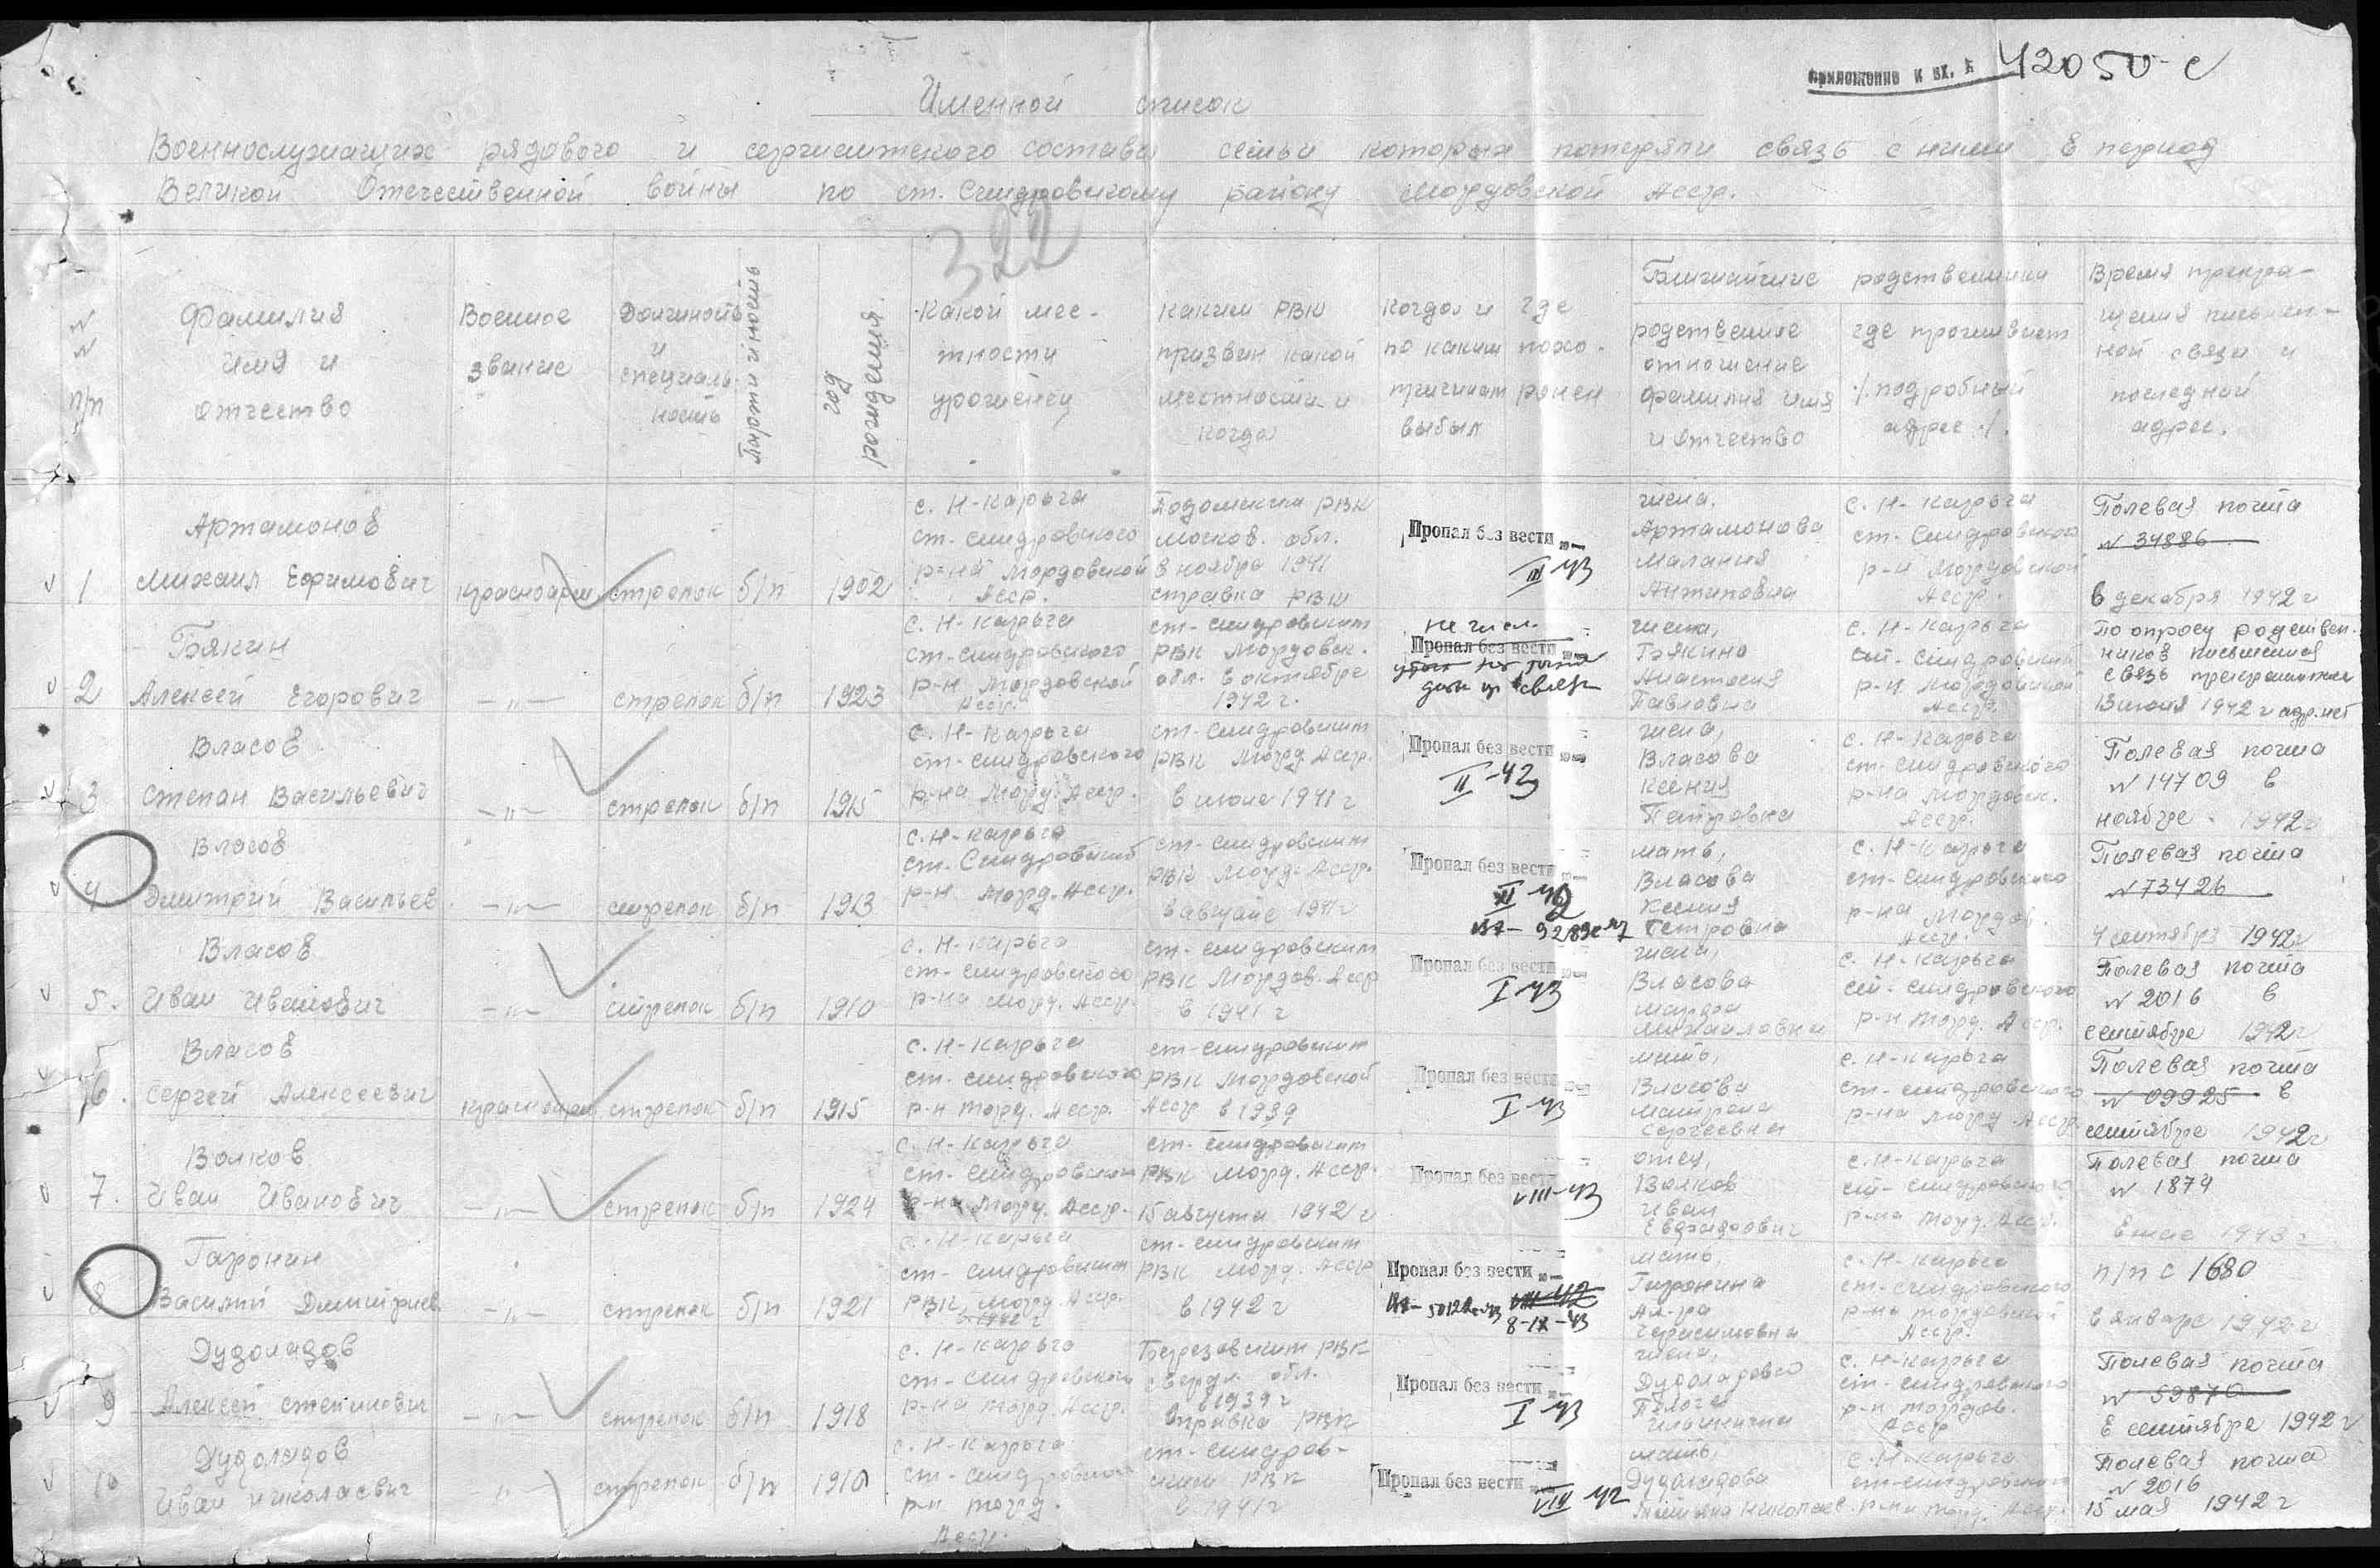 Приложение к вх. № 42050-с
Именной список
Военнослужащих рядового и сержантского состава семьи которых потеряли связь с ними в период
Великой Отечественной войны по ст. Синдровскому району Мордовской Асср.
322
№№ п/п
Фамилия имя и отчество
Военное звание
Должность и специальность
Партийность
Год рождения
Какой местности уроженец
каким РВК призван какой местности и когда
когда и где по каким причинам выбыл
похоронен
Ближайшие родственники
родственное отношение фамилия имя и отчество
где проживает /. подробный адрес ./.
Время прекращения письменной связи и последной адрес.
1
Артамонов
Михаил Ефимович
красноарм
стрелок
б/п
1902
с. Н-Карьга
ст. Синдровского
р-на Мордовской
Асср.
Подольским РВК
Москов. обл.
в ноября 1941
справка РВК
Пропал без вести
III-43
жена,
Артамонова
Малания
Антиповна
с. Н-Карьга
ст. Синдровского
р-н Мордовской
Асср.
Полевая почта
№ 34886
в декабря 1942 г
2
Бякин
Алексей Егорович
—"—
стрелок
б/п
1923
с. Н-Карьга
ст-Синдровского
р-н Мордовской
Асср.
ст-Синдровским
РВК Мордовск.
обл. в октябре
1942 г.
Пропал без вести
жена,
Бякина
Анастасия
Павловна
с. Н-Карьга
ст-Синдровский
р-н Мордовской
Асср.
По опросу родствен-
ников письменная
связь прекращена
1942 г адр. нет
3
Власов
Степан Васильевич
—"—
стрелок
б/п
1915
с. Н-Карьга
ст-Синдровского
р-на Морд. Асср.
ст-Синдровским
РВК Морд. Асср.
в июле 1941 г
Пропал без вести
II-43
жена,
Власова
Ксения
Петровна
с. Н-Карьга
ст-Синдровского
р-на Мордовск.
Асср.
Полевая почта
№ 14709 в
ноябре 1942 г
4
Власов
Дмитрий Васильев.
—"—
стрелок
б/п
1913
с. Н-Карьга
ст. Синдровский
р-н Морд. Асср.
ст-Синдровским
РВК Морд. Асср.
в августе 1941 г
Пропал без вести
мать,
Власова
Ксения
Петровна
с. Н-Карьга
ст-Синдровского
р-на Мордов.
Асср.
Полевая почта
№ 73426
4 сентября 1942 г
5.
Власов
Иван Иванович
—"—
стрелок
б/п
1910
с. Н-Карьга
ст-Синдровского
р-на Морд. Асср.
ст-Синдровским
РВК Мордов. Асср
в 1941 г
Пропал без вести
I-43
жена,
Власова
Михайловна
с. Н-Карьга
ст-Синдровского
р-н Морд. Асср.
Полевая почта
№ 2016 в
сентябре 1942 г
6.
Власов
Сергей Алексеевич
красноарм
стрелок
б/п
1915
с. Н-Карьга
ст-Синдровского
р-н Морд. Асср.
ст-Синдровским
РВК Мордовской
Асср в 1939
Пропал без вести
I-43
мать,
Власова
Матрена
Сергеевна
с. Н-Карьга
ст-Синдровского
р-на Морд Асср.
Полевая почта
№ 09925 в
сентябре 1942 г
7.
Волков
Иван Иванович
—"—
стрелок
б/п
1924
с. Н-Карьга
ст-Синдровском
р-на Морд. Асср.
ст-Синдровским
РВК Морд. Асср.
15 августа 1942 г
Пропал без вести
VIII-43
отец,
Волков
Иван
с. Н-Карьга
ст-Синдровского
р-на Морд. Асср.
Полевая почта
№ 1874
в мае 1943 г
8
Гаронин
Василий Дмитриев.
—"—
стрелок
б/п
1921
с. Н-Карьга
ст-Синдровским
РВК, Морд. Асср.
в 1942 г
ст-Синдровским
РВК Морд. Асср
в 1942 г
Пропал без вести
8-IX-43
мать,
Гаронина
Ал-ра
Герасимовна
с. Н-Карьга
ст-Синдровского
р-на Мордовской
Асср.
п/п с 1680
в январе 1942 г
9
Дудоладов
Алексей Степанович
—"—
стрелок
б/п
1918
с. Н-Карьга
ст-Синдровского
р-на Морд. Асср.
Березовским РВК
Свердл. обл.
в 1939 г
справка РВК
Пропал без вести
I-43
жена,
Дудоладова
Ильинична
с. Н-Карьга
ст-Синдровского
р-н Мордов.
Асср
Полевая почта
№ 59870
в сентябре 1942 г
10
Дудоладов
Иван Николаевич
—"—
стрелок
б/п
1910
с. Н-Карьга
ст-Синдровском
р-н Морд.
Асср.
ст-Синдров-
ским РВК
в 1941 г
Пропал без вести
VIII 42
мать,
Дудоладова
Татьяна Николаев
с. Н-Карьга
ст-Синдровского
р-на Морд. Асср.
Полевая почта
№ 2016
15 мая 1942 г